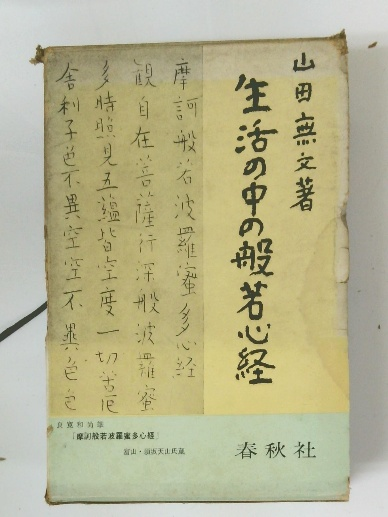 山田無文著
生活の中の般若心経
摩訶般若波羅蜜多心経
観自在菩薩行深般波羅蜜
多時照見五蘊皆空度一切苦厄
舎利子色不異空空不異色色
良寛和尚筆
「摩訶般若波羅蜜多心経」
春秋社